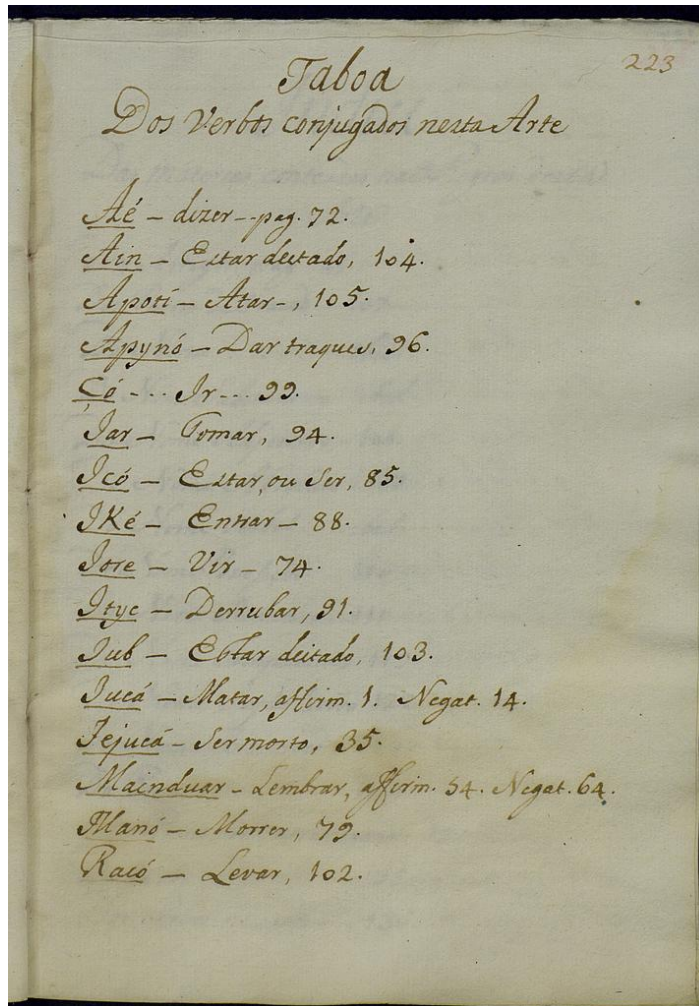 223
Taboa
Dos Verbos conjugados nesta Arte
Aé – dizer – pag. 72.
Ain – Estar deitado, 104.
Apotí – Atar –, 105.
Apynó – Dar traques, 96.
Çó - - - Ir - - - 99.
Iar – Tomar, 94.
Icó – Estar, ou Ser, 85.
IKé – Entrar – 88.
Iore – Vir – 74.
Ityc – Derrubar, 91.
Iub – Estar deitado, 103.
Iucá – Matar, affirm. 1. Negat. 14.
Iejucá – Ser morto, 35.
Mainduar – Lembrar, affirm. 54. Negat. 64.
Manó – Morrer, 79.
Racó – Levar, 102.